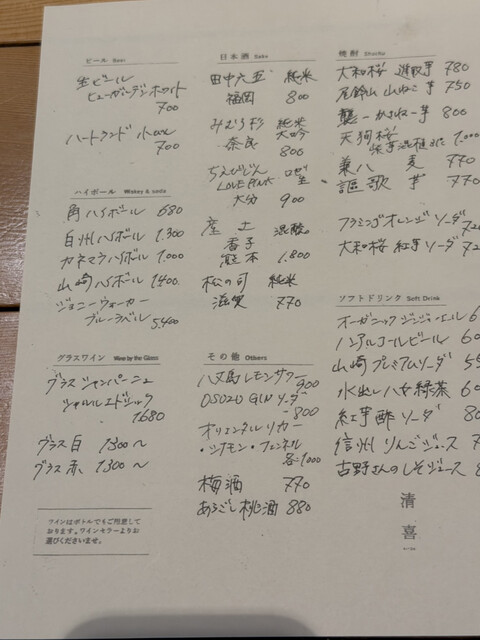 ビール Beer
生ビール
ヒューガーデンホワイト
700
ハートランド 小
700
ハイボール Wiskey & soda
角ハイボール 680
白州ハイボール 1,300
カネマラハイボール 1,000
山崎ハイボール 1400
ジョニーウォーカー
ブルーラベル 5,400
グラスワイン Wine by the Glass
グラスシャンパーニュ
シャルルエドシック
1680
グラス白 1300〜
グラス赤 1,300〜
ワインはボトルでもご用意して
おります。ワインセラーよりお
選びくださいませ。
日本酒 Sake
田中六五 純米
福岡 800
みむろ杉 純米
大吟
奈良 800
ちえびじん ロゼ
LOVE PINK 生
大分 900
産土
香子
熊本 1.800
松の司 純米
滋賀 770
その他 Others
八丈島レモンサワー
900
OSUZU GINソーダ
800
オリエンタルリカー
・シナモン・フェンネル
各1000
梅酒 770
あらごし桃酒 880
焼酎 Shochu
大和桜 選取芋 780
尾鈴山 山ねこ 芋 750
甕一 かめ 芋 800
天狗櫻
1.000
兼八 麦 770
謳歌 芋 770
フラミンゴオレンジソーダ 72
大和桜 紅芋ソーダ 72
ソフトドリンク Soft Drink
オーガニックジンジャーエール 6
ノンアルコールビール 60
山崎プレミアムソーダ 55
水出し八女緑茶 60
紅芋酢ソーダ 80
信州りんごジュース 7
古野さんのしそジュース 8
清
喜